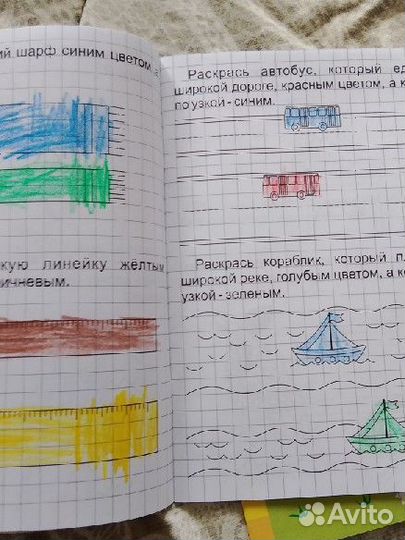 ий шарф синим цветом а
кую линейку жёлтым
ичневым.
Раскрась автобус, который ед
широкой дороге, красным цветом, а к
по узкой - синим.
Раскрась кораблик, который пл
широкой реке, голубым цветом, а ко
узкой - зелёным.
Avito